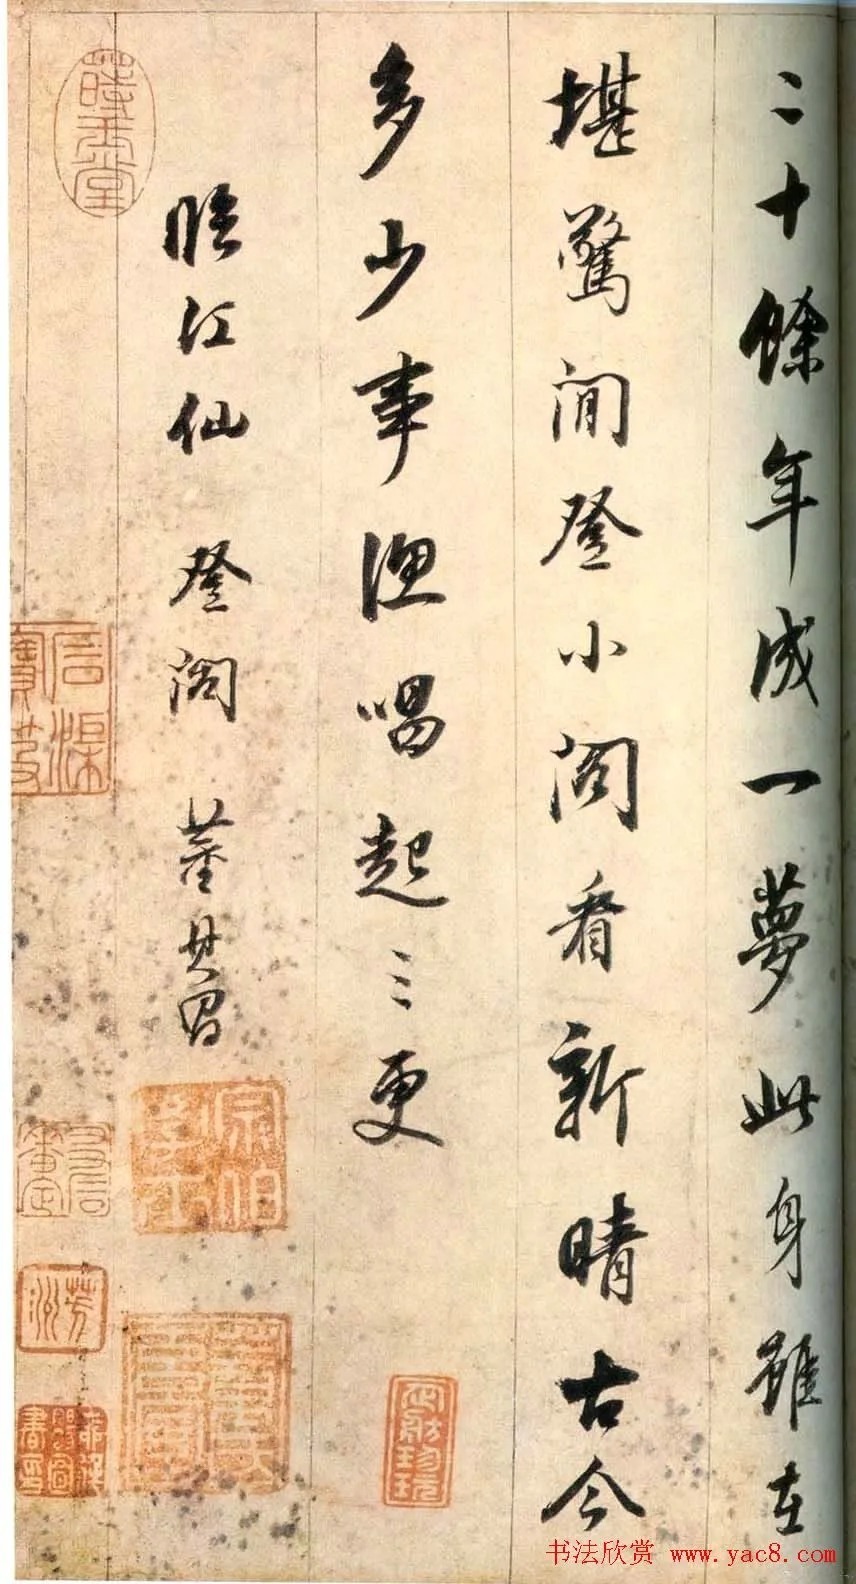 二十餘年成一夢此身雖在
堪驚閒登小閣看新晴古今
多少事漁唱起三更
臨江仙 登閣 董其昌
宗伯學士
书法欣赏 www.yac8.com